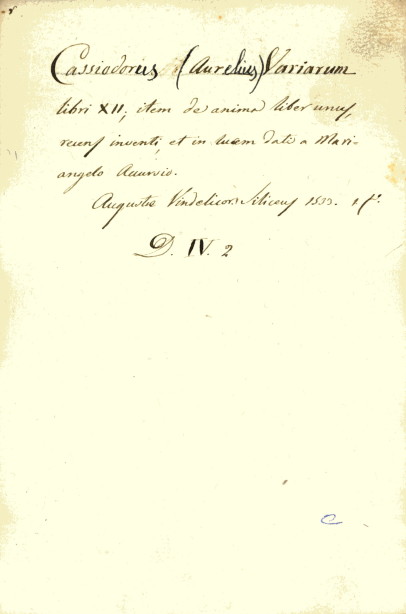 Cassiodorus (Aurelius) Variarum
libri XII, item de anima liber unus,
recens inventi, et in lucem dati a Mari-
angelo Accursio.
Augustae Vindelicor. Siliceus 1533. 1 f°.
D. IV. 2
C